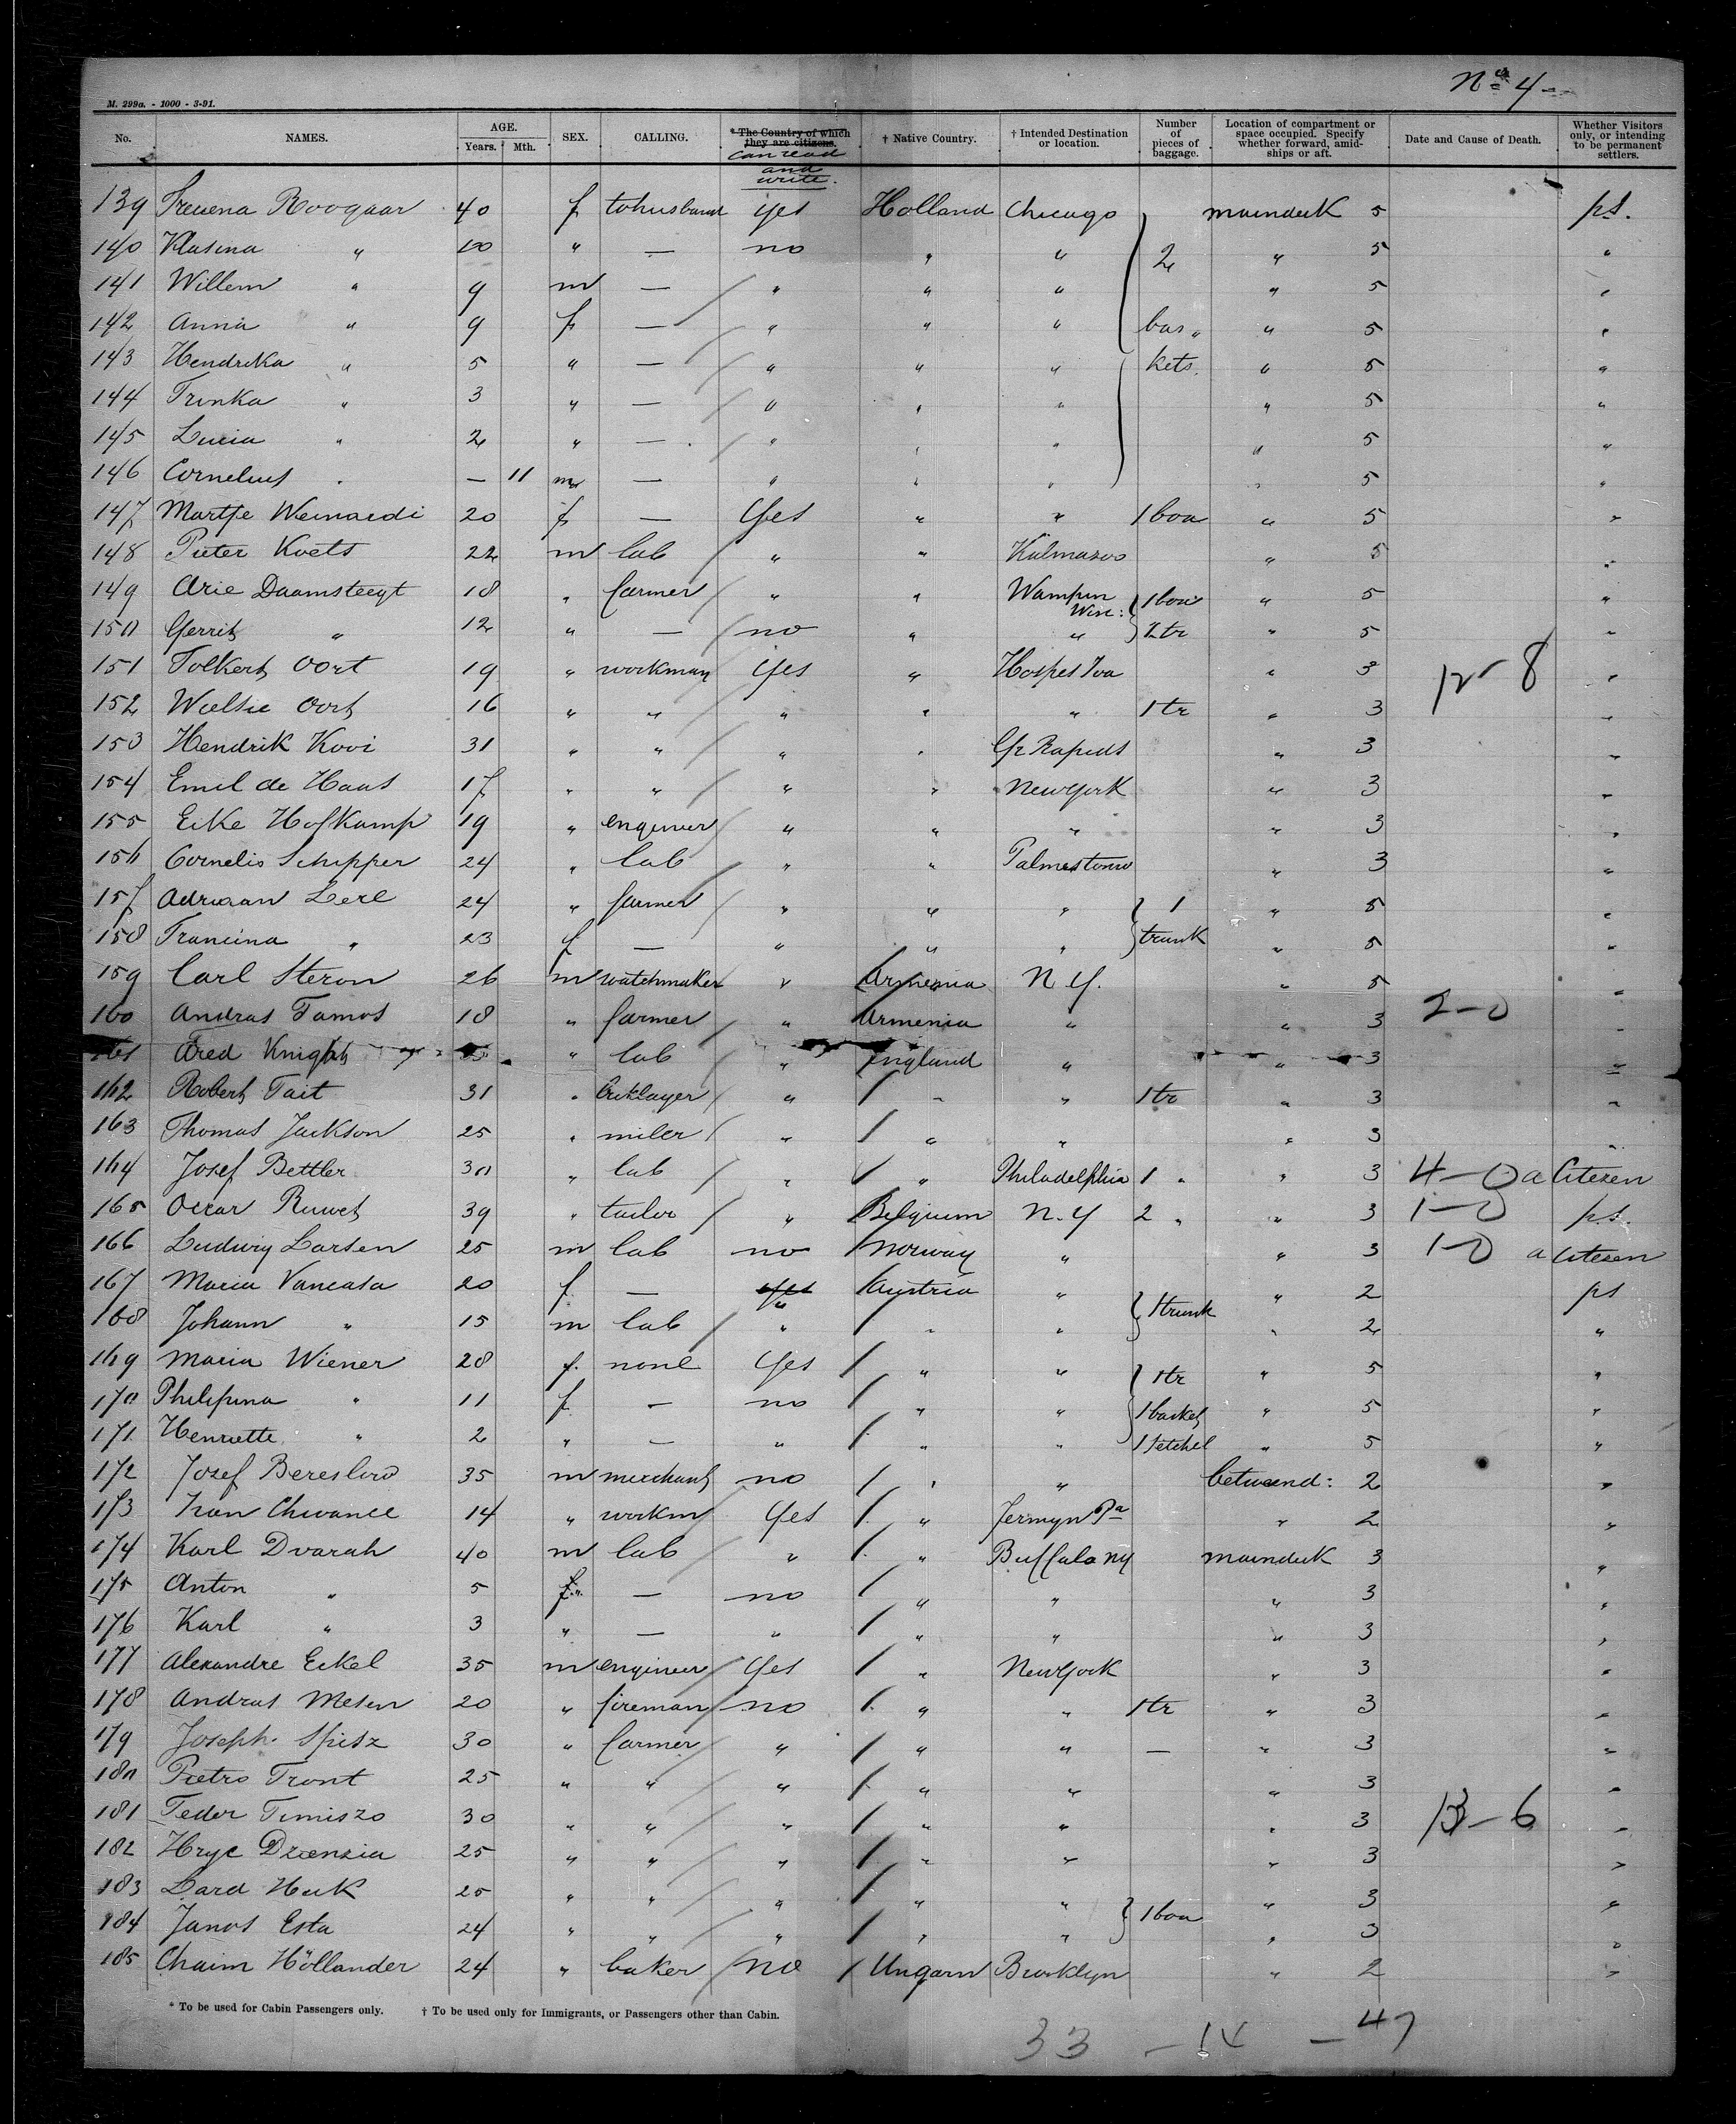 Nº 4
M. 299a. - 1000 - 3-91.
No. NAMES. AGE. Years. Mth. SEX. CALLING. * The Country of which they are citizens. can read and write. † Native Country. † Intended Destination or location. Number of pieces of baggage. Location of compartment or space occupied. Specify whether forward, amidships or aft. Date and Cause of Death. Whether Visitors only, or intending to be permanent settlers.
139 Roogaar 40 f tohusband yes Holland Chicago maindeck 5 ps.
140 Klasina " 10 " — no " " 2 " 5 "
141 Willem " 9 m — " " " " 5 "
142 Anna " 9 f — " " " bas " 5 "
143 Hendrika " 5 " — " " " kets. " 5 "
144 Trinka " 3 " — " " " " 5 "
145 Lucia " 2 " — " " " " 5 "
146 Cornelius " — 11 m — " " " " 5 "
147 Martje Weinardi 20 f — Yes " " 1 box " 5 "
148 Pieter Koets 22 m lab " " Kalmazoo " 5 "
149 Arie Daamsteegt 18 " farmer " " Waupun Wisc: 1 box " 5 "
150 Gerrit " 12 " — no " " 2 tr " 5 "
151 Folkert Oort 19 " workman Yes " Hospes Ioa " 3 12-8 "
152 Oort 16 " " " " " 1 tr " 3 "
153 Hendrik Kooi 31 " " " " Gr Rapids " 3 "
154 Emil de Haas 17 " " " " New York " 3 "
155 Eike Hofkamp 19 " engineer " " " " 3 "
156 Cornelis Schipper 24 " lab " " Palmestown " 3 "
157 Adriaan Lerl 24 " farmer " " " 1 " 5 "
158 Francina " 23 f — " " " trunk " 5 "
159 Carl Steron 26 m watchmaker " Armenia N.Y. " 5 "
160 Andras Tamos 18 " farmer " Armenia " " 3 2-0 "
161 Knight " lab " England " " 3 "
162 Robert Tait 31 " bricklayer " " " 1 tr " 3 "
163 Thomas Jackson 25 " miler " " " " 3 "
164 Josef Bettler 30 " lab " " Philadelphia 1 " " 3 4-0 a Citezen
165 Oscar Ruwet 39 " tailor " Belgium N.Y 2 " " 3 1-0 p.s.
166 Ludwig Larsen 25 m lab no Norway " " 3 1-0 a Citezen
167 Maria Vancasa 20 f — yes " Austria " " 2 ps
168 Johann " 15 m lab " " " 1 trunk " 2 "
169 Maria Wiener 28 f. none Yes " " 1 tr " 5 "
170 Philipina " 11 f — no " " 1 basket " 5 "
171 Henriette " 2 " — " " " 1 setchel " 5 "
172 Josef Bereslow 35 m merchant no " " betweend: 2 "
173 Ivan Chwance 14 " workm Yes " Jermyn Pa " 2 "
174 Karl Dvarah 40 m lab " " Buffalo NY maindeck 3 "
175 Anton " 5 f " — no " " " 3 "
176 Karl " 3 " — " " " " 3 "
177 Alexandre Eckel 35 m engineer Yes " New York " 3 "
178 Andras Mesen 20 " fireman no " " 1 tr " 3 "
179 Joseph Spisz 30 " farmer " " " — " 3 "
180 Pietro Tront 25 " " " " " " 3 "
181 Feder Timiszo 30 " " " " " " 3 13-6 "
182 Hryc Dzienzia 25 " " " " " " 3 "
183 Huk 25 " " " " " " 3 "
184 Janos Esta 24 " " " " " 1 box " 3 "
185 Chaim Höllander 24 " baker no Ungarn Brooklyn " 2 "
* To be used for Cabin Passengers only. † To be used only for Immigrants, or Passengers other than Cabin.
33 - 14 - 47